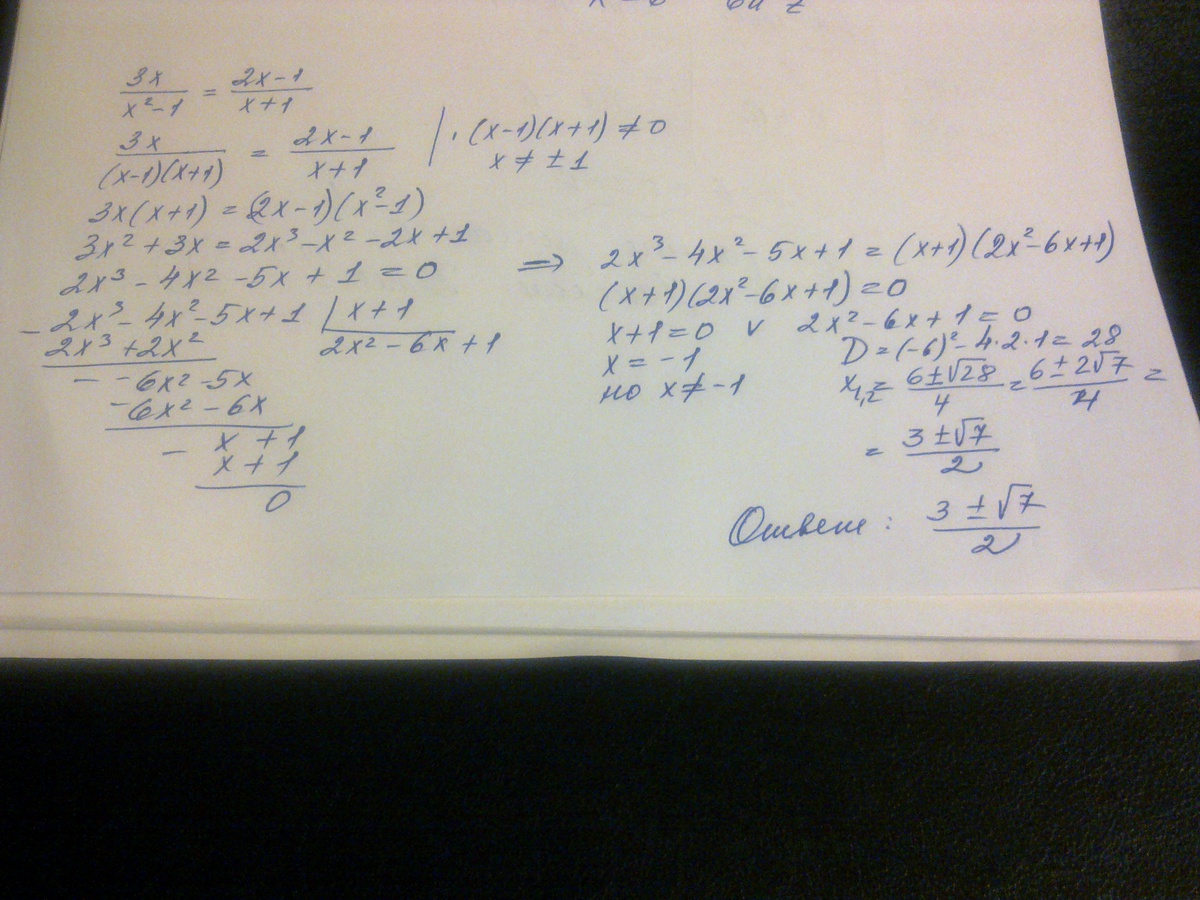 3x/(x²-1) = (2x-1)/(x+1)
3x/((x-1)(x+1)) = (2x-1)/(x+1) | · (x-1)(x+1) ≠ 0
x ≠ ± 1
3x(x+1) = (2x-1)(x²-1)
3x² + 3x = 2x³ - x² - 2x + 1
2x³ - 4x² - 5x + 1 = 0
- 2x³ - 4x² - 5x + 1 | x + 1
2x³ + 2x² 2x² - 6x + 1
- - 6x² - 5x
- 6x² - 6x
- x + 1
x + 1
0
⇒ 2x³ - 4x² - 5x + 1 = (x+1)(2x² - 6x + 1)
(x+1)(2x² - 6x + 1) = 0
x + 1 = 0 v 2x² - 6x + 1 = 0
x = -1 D = (-6)² - 4·2·1 = 28
но x ≠ -1 x₁,₂ = (6 ± √28)/4 = (6 ± 2√7)/4 =
= (3 ± √7)/2
Ответ: (3 ± √7)/2